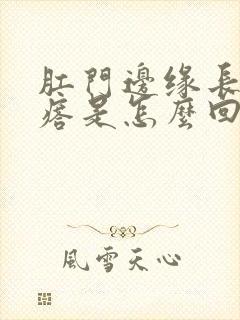 肛門邊缘長
痞是怎麼回
風雪天心